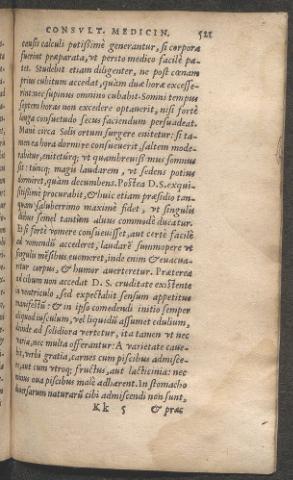 CONSVLT. MEDICIN. 521
teusis calculi potißimè generantur, si corpora
fuerint præparata, vt persto medico facilè pa-
tet. Studebit etiam diligenter, ne post cœnam
prius cubitum accedat, quàm duæ horæ excesse-
rint: nec supinus omnino cubabit. Somni tempus
septem horas non excedere optauerit, nisi fortè
longa consuetudo secus faciendum persuadeat.
Manè circa Solis ortum surgere enitetur: si ta-
men ea hora dormire consueuerit, saltem mode-
rabitur, enitetúrq; vt quambreuißimus somnus
sit: túncq; magis laudarem, vt sedens potius
dormiret, quàm decumbens. Postea D. S. exqui-
sitißimè procurabit, & huic etiam præsidio tan-
quam saluberrimo maximè fidet, vt singulis
diebus semel tantùm aluus commodè ducatur.
Et si fortè vomere consueuisset, aut certè facilè
ad vomendū accederet, laudarē summopere vt
singulis mēsibus euomeret, inde enim & euacua-
retur corpus, & humor auerteretur. Præterea
ad cibum non accedat D. S. cruditate existente
in ventriculo, sed expectabit sensum appetitus
manifestū: & in ipso comedendi initio semper
aliquod iusculum, vel liquidū assumet edulium,
deinde ad solidiora vertetur, ita tamen vt nec
varia, nec multa offerantur: A varietate caue-
bit, verbi gratia, carnes cum piscibus admisce-
re, aut cum vtroq; fructus, aut lacticinia: nec
minus oua piscibus malè adhærent. In stomacho
diuersarum naturarū cibi admiscendi non sunt,
Kk 5 & præ